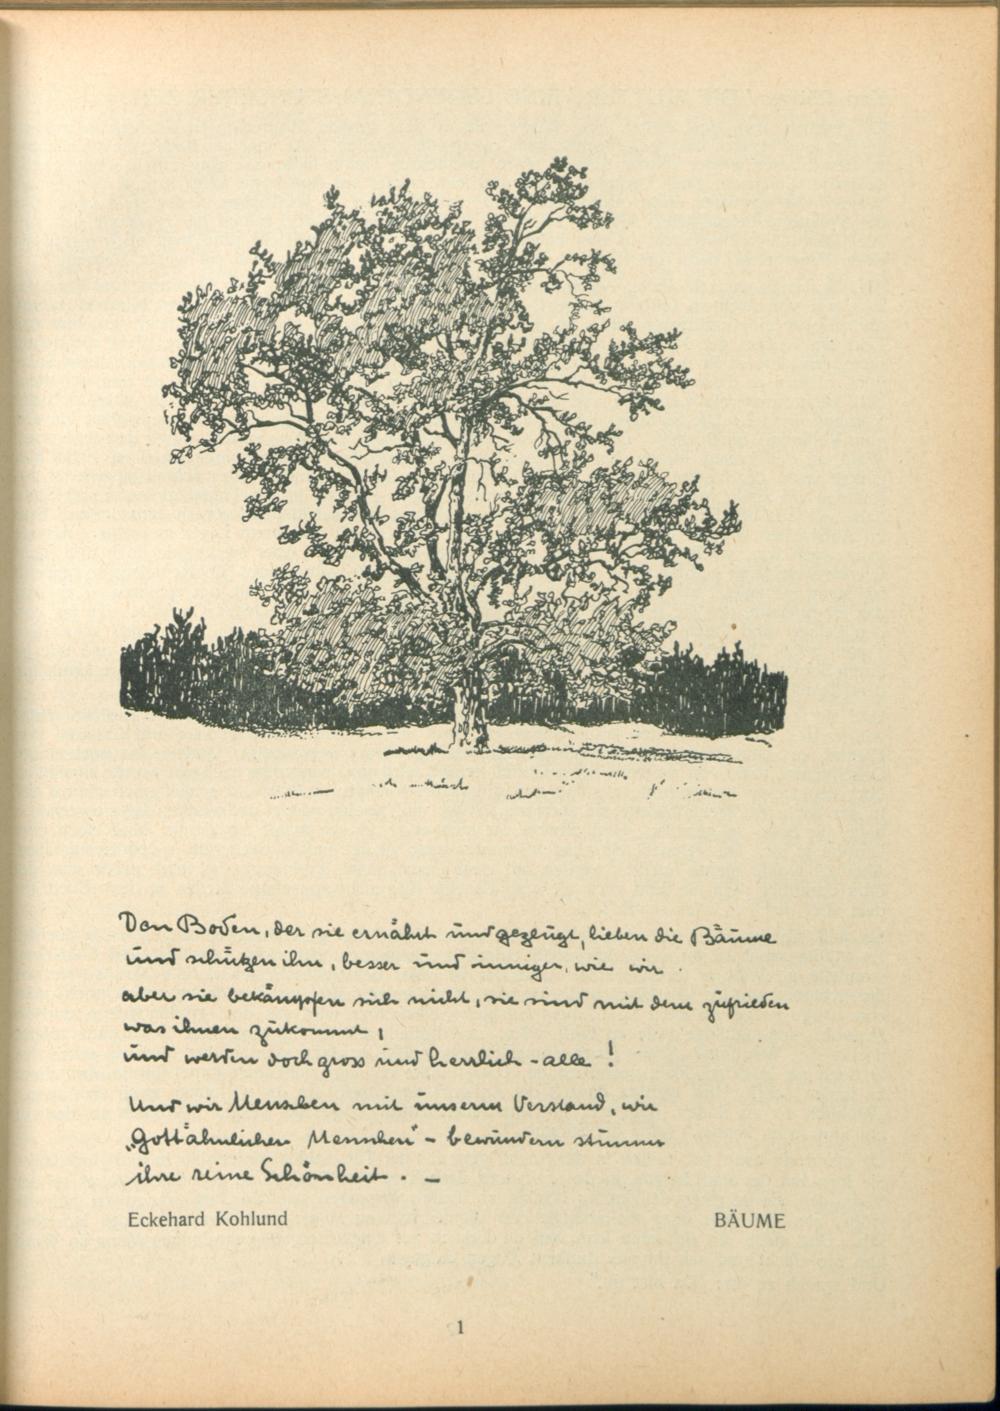 Den Boden, der sie ernährt und gezeugt, lieben die Bäume
und schützen ihn, besser und inniger, wie wir.
aber sie bekämpfen sich nicht, sie sind mit dem zufrieden
was ihnen zukommt,
und werden doch gross und herrlich - alle !
Und wir Menschen mit unserm Verstand, wir
„Gottähnlichen Menschen" - bewundern stumm
ihre reine Schönheit. -
Eckehard Kohlund
BÄUME
1